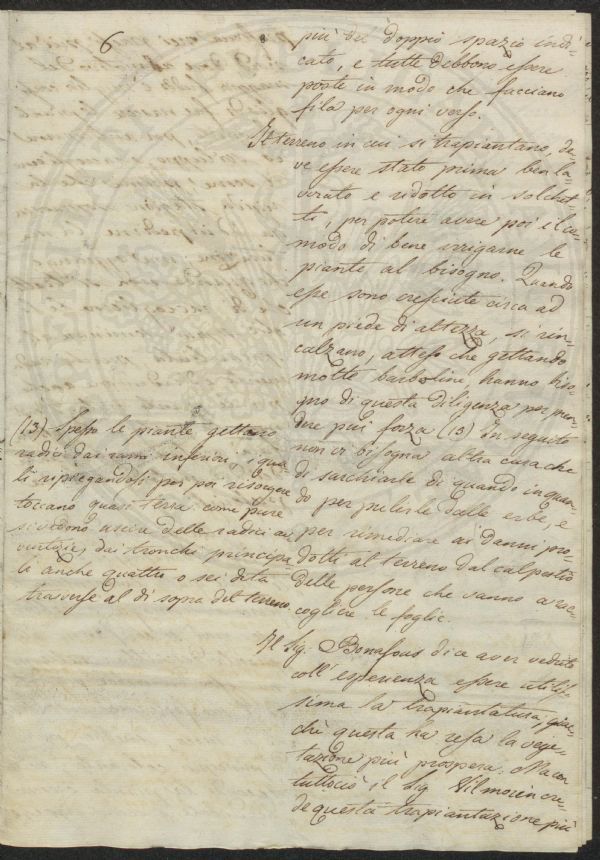 6
più del doppio spazio indi-
cato, e tutte debbono essere
poste in modo che facciano
fila per ogni verso.
Il terreno in cui si trapiantano, de-
ve essere stato prima ben la-
vorato e ridotto in solchet-
ti, per potere avere poi il co-
modo di bene irrigarne le
piante al bisogno. Quando
esse sono cresciute circa ad
un piede di altezza, si rin-
calzano, atteso che gettando
molte barboline, hanno biso-
gno di questa diligenza per pren-
dere più forza (13) In seguito
non vi bisogna altra cura che
di sarchiarle di quando in quan-
do per pulirle dalle erbe, e
per rimediare ai danni pro-
dotti al terreno dal calpestio
delle persone che vanno a rac-
cogliere le foglie.
Il Sig. Bonafous dice aver veduto
coll'esperienza essere utilis-
sima la trapiantatura, giac-
chè questa ha resa la vege-
tazione più prospera. Ma con
tuttociò il Sig. Vilmorin cre-
de questa trapiantazione più
(13) Spesso le piante gettano
radici dai rami inferiori, i qua
li ripiegandosi per poi risorgere
toccano quasi terra come pure
si vedono uscire delle radici av
ventizie, dai tronchi principa
li anche quattro o sei dita
traverse al di sopra del terreno